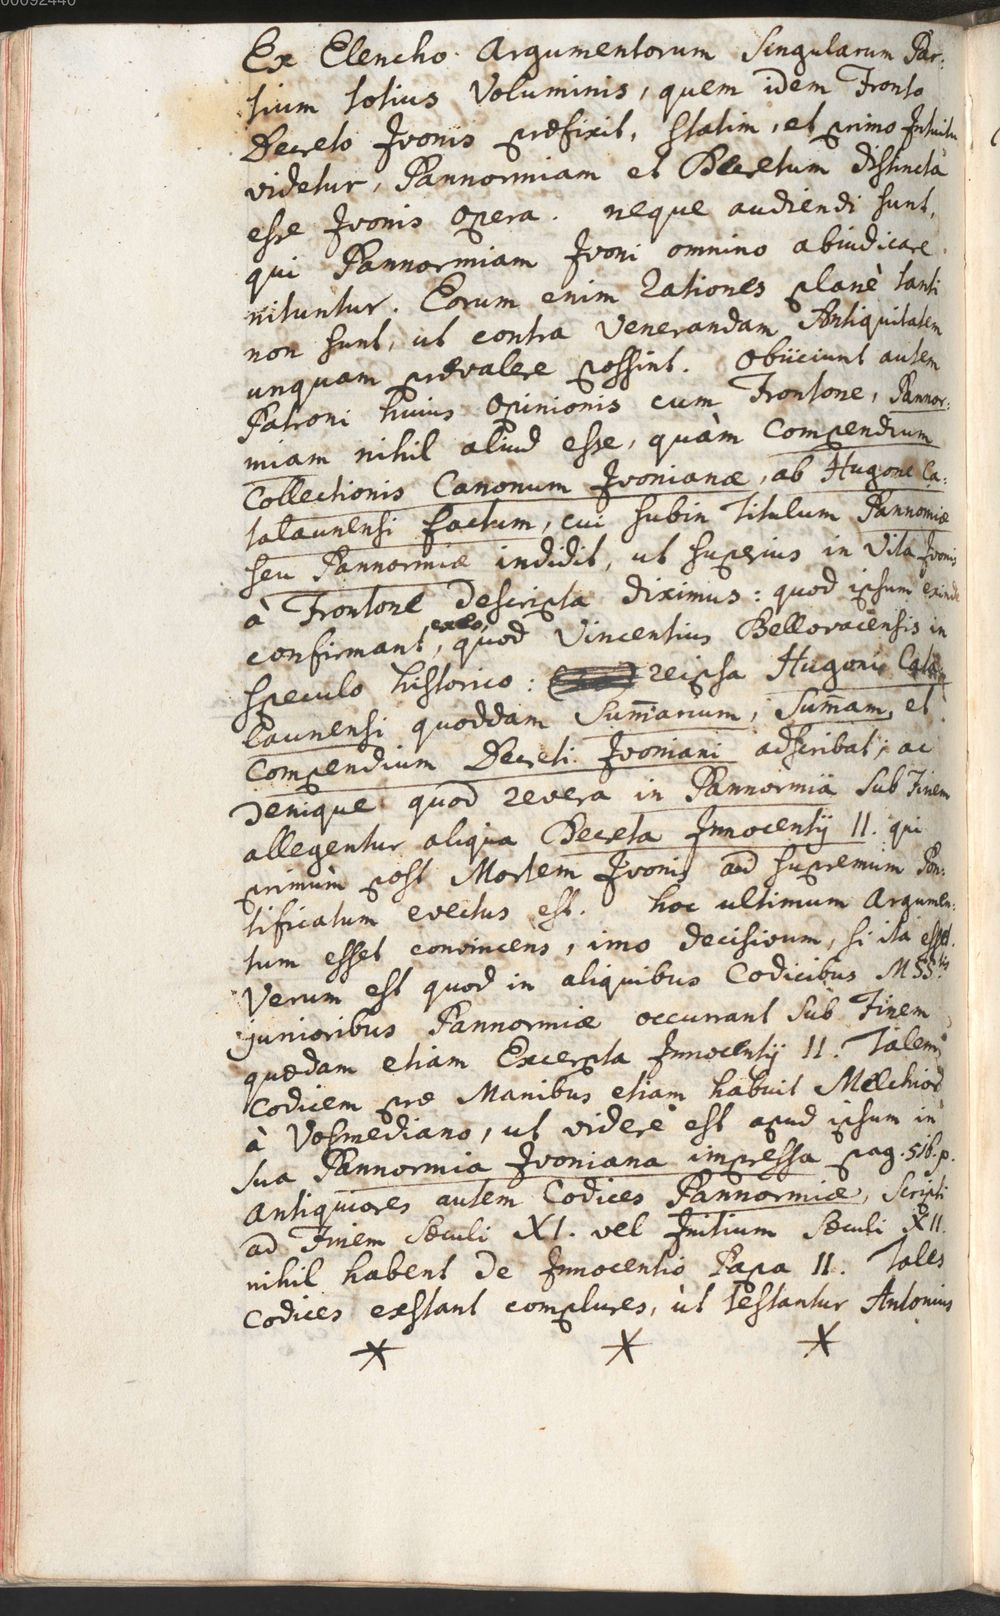 00092440
Ex Elencho Argumentorum Singularum Par:
tium totius Voluminis, quem idem Fronto
Decreto Jvonis præfixit, statim, et primo Intuitu
videtur, Pannormiam et Decretum distincta
esse Jvonis Opera. neque audiendi sunt,
qui Pannormiam Jvoni omnino abiudicare
nituntur. Eorum enim Rationes planè tanti
non sunt, ut contra Venerandam Antiquitatem
unquam prævalere possint. Obiiciunt autem
Patroni huius Opinionis cum Frontone, Pannor:
miam nihil aliud esse, quàm Compendium
Collectionis Canonum Jvonianæ, ab Hugone Ca:
talaunensi factum, cui subin Titulum Pannomiæ
seu Pannormiæ indidit, ut superius in Vita Jvonis
à Frontone descripta diximus: quod ipsum exinde
confirmant, quod Vincentius Bellovacensis in
Speculo historico: reipsa Hugoni Cata:
launensi quoddam Sum̄arium, Sum̄am, et
Compendium Decreti Jvoniani adscribat; ac
denique quod revera in Pannormiâ sub Finem
allegentur aliqua Decreta Innocentij II. qui
primùm post Mortem Jvonis ad supremum Pon:
tificatum evectus est. hoc ultimum Argumen:
tum esset convincens, imo decisivum, si ita esset.
Verum est quod in aliquibus Codicibus MSStis
junioribus Pannormiæ occurrant sub Finem
quædam etiam Excerpta Innocentij II. Talem
Codicem præ Manibus etiam habuit Melchior
à Vosmediano, ut videre est apud ipsum in
sua Pannormia Jvoniana impressa pag. 516. p.
Antiquiores autem Codices Pannormiæ, scripti
ad Finem Sæculi XI. vel Initium Sæculi XII.
nihil habent de Innocentio Papa II. Tales
Codices exstant complures, ùt testantur Antonius
* * *